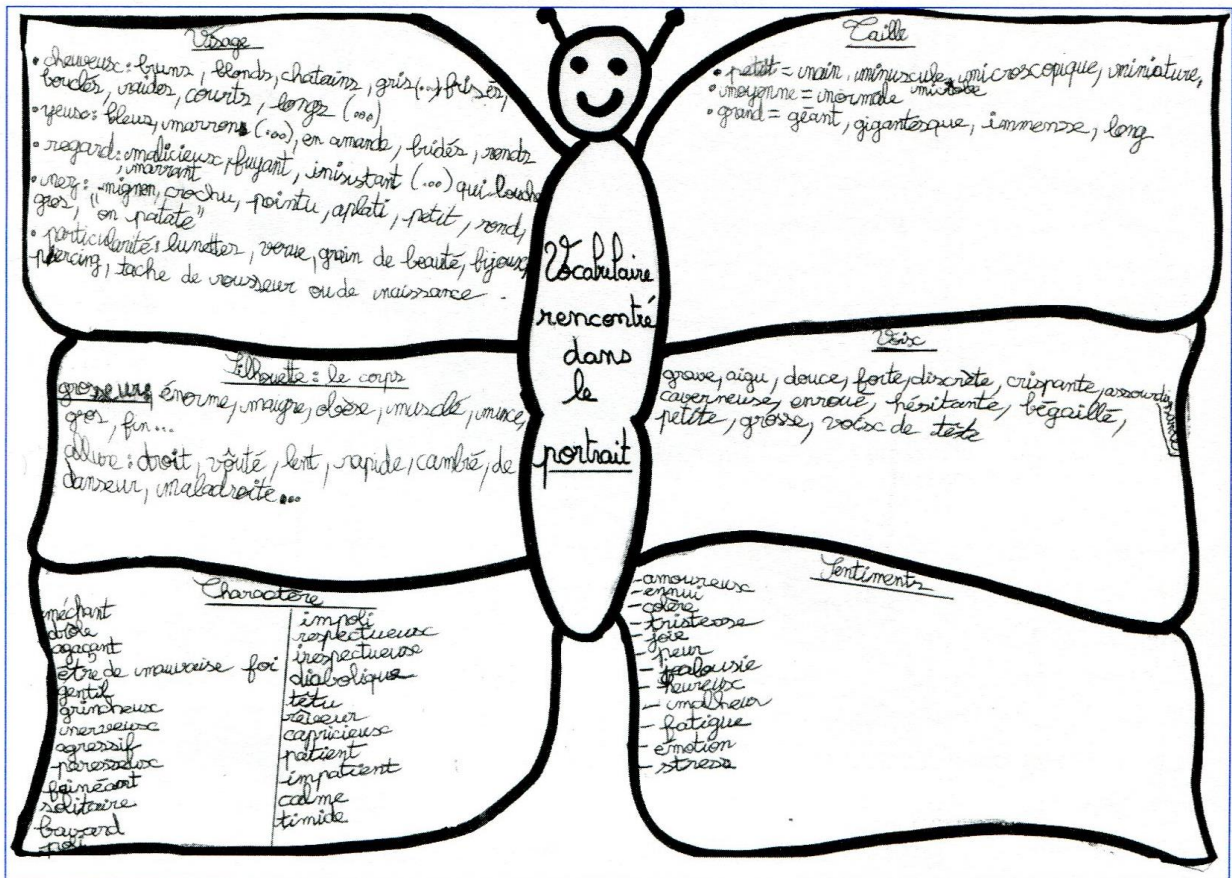 Visage
• cheveux : bruns, blonds, chatains, gris (...) frisés,
bouclés, raides, courts, longs (...)
• yeux : bleus, marrons (...), en amande, bridés, ronds
• regard : malicieux, fuyant, insistant (...) qui louche
, marrant
• nez : "mignon, crochu, pointu, aplati, petit, rond,
gros, "en patate"
• particularité : lunettes, verrue, grain de beauté, bijoux,
piercing, tache de rousseur ou de naissance.
Taille
• petit = nain, minuscule, microscopique, miniature,
microbe
• moyenne = normale
• grand = géant, gigantesque, immense, long
Vocabulaire
rencontré
dans
le
portrait
Silhouette : le corps
grosseurs énorme, maigre, obèse, musclé, mince,
gros, fin...
allure : droit, voûté, lent, rapide, cambré, de
danseur, maladroite...
Voix
grave, aigu, douce, forte, discrète, crispante,
caverneuse, enroué, hésitante, bégaillé,
petite, grosse, voix de tête
Charactère
méchant
drôle
agaçant
être de mauvaise foi
gentil
grincheux
nerveux
agressif
paresseux
fainéant
solitaire
bavard
poli
impoli
respectueux
irespectueuse
diabolique
têtu
rêveur
capricieux
patient
impatient
calme
timide
Sentiments
- amoureux
- ennui
- colère
- tristesse
- joie
- peur
- jalousie
- heureux
- malheur
- fatigue
- émotion
- stress